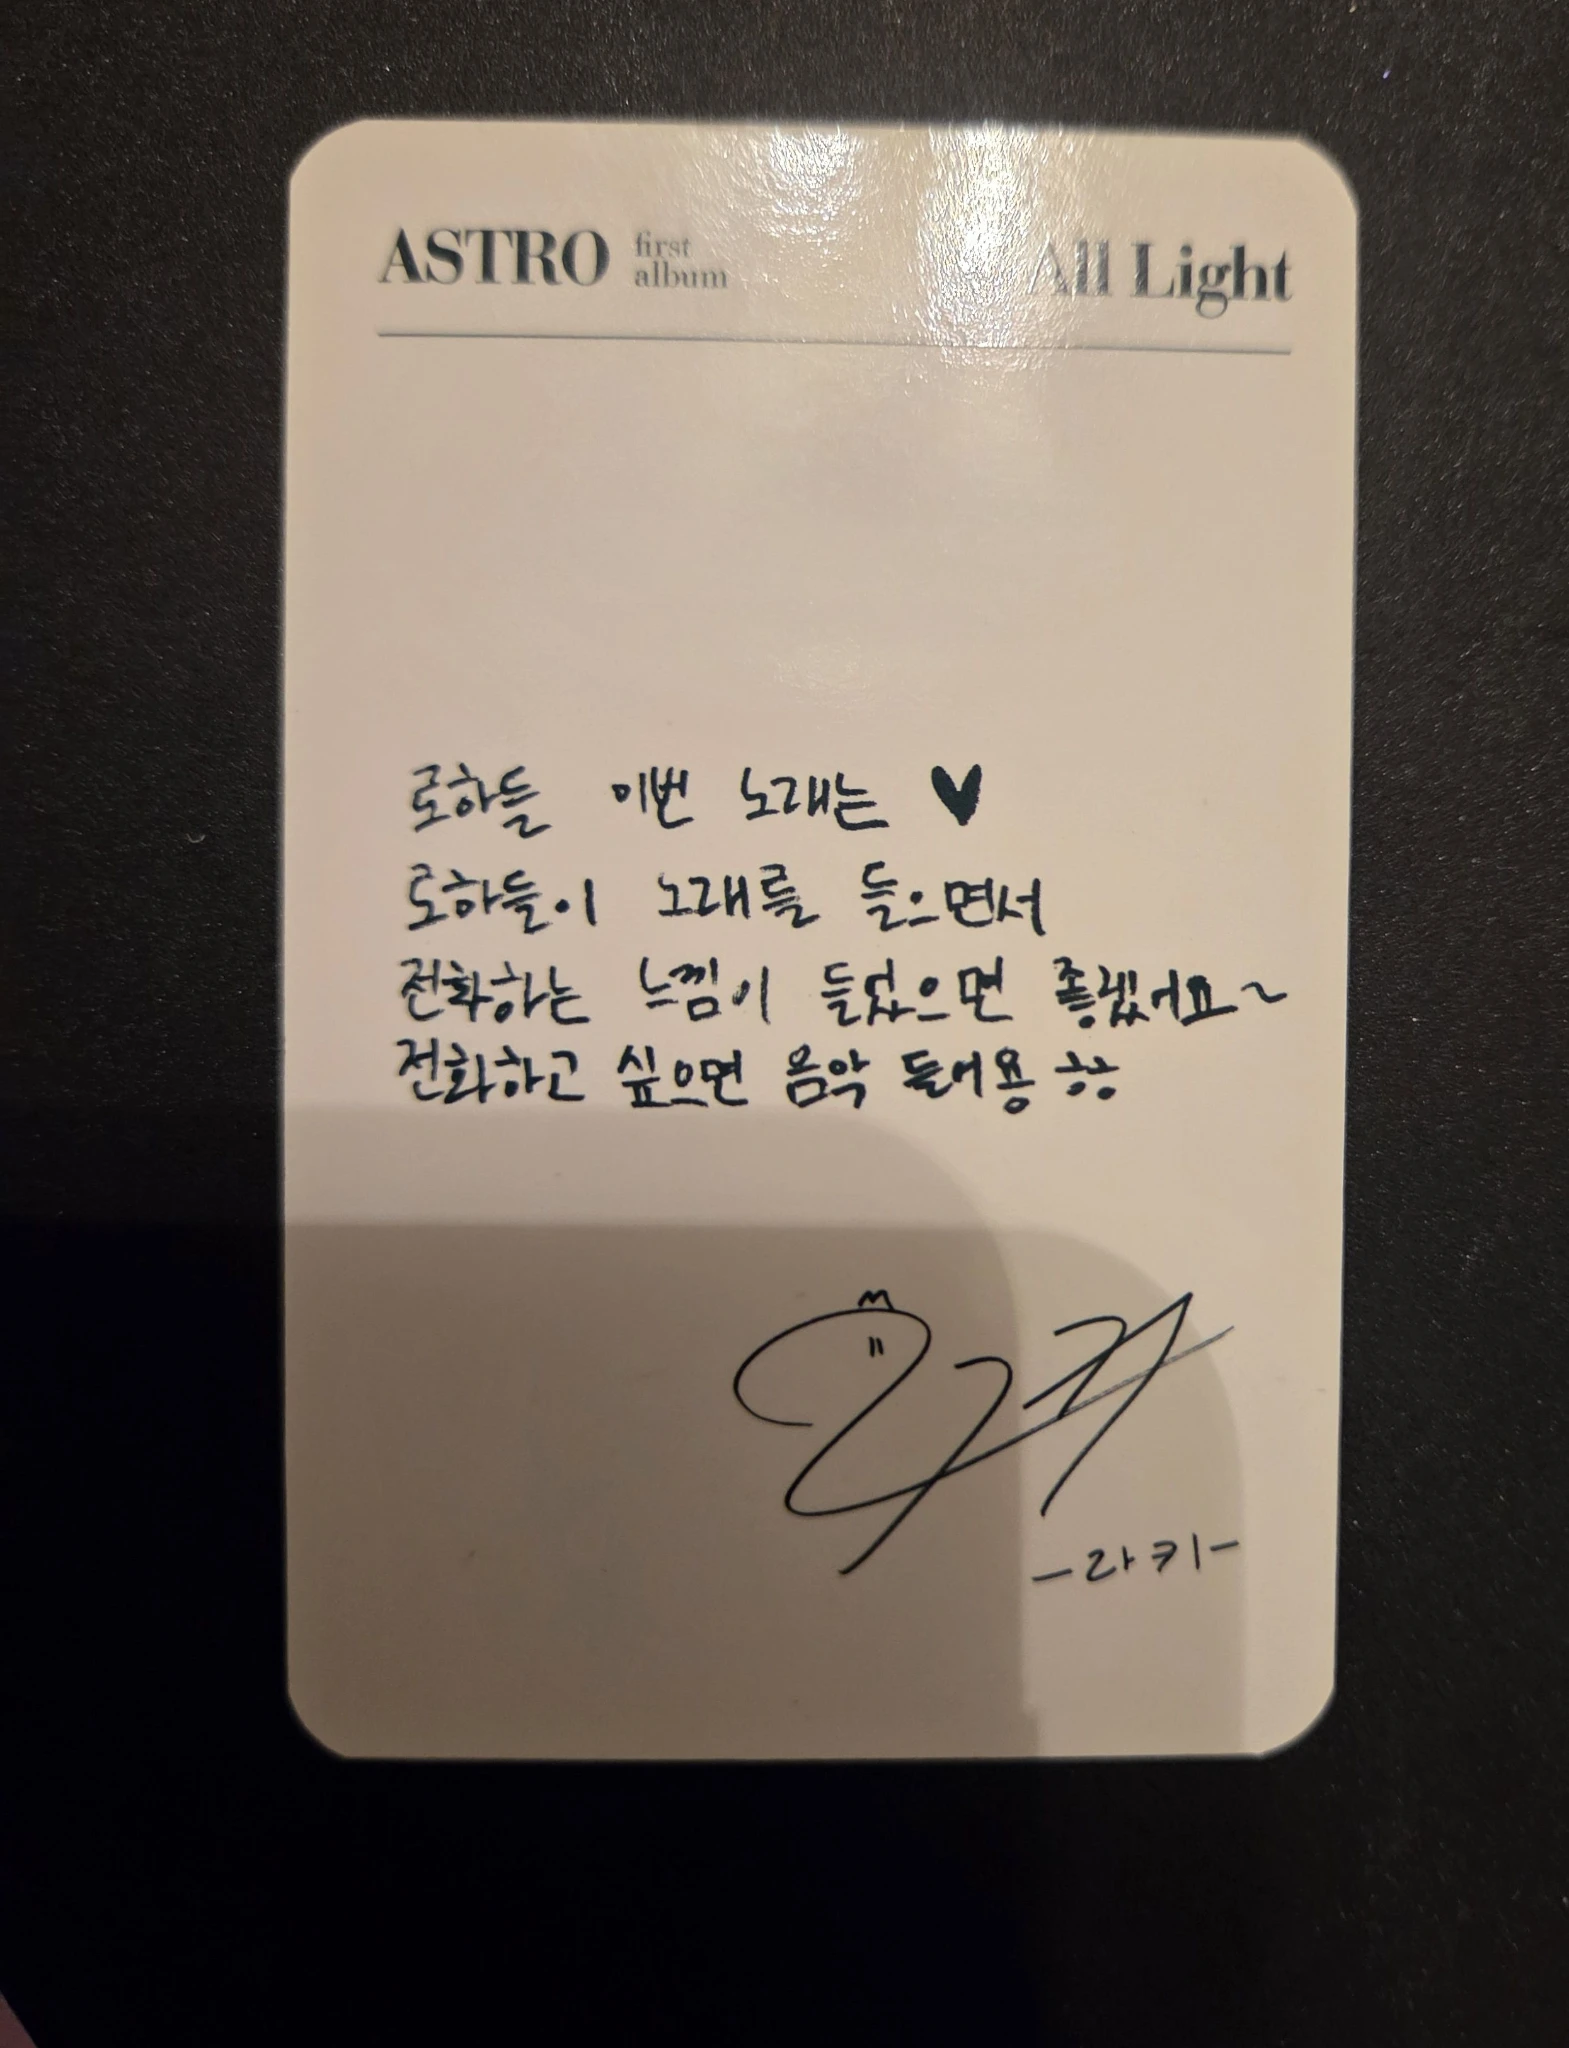 ASTRO first album All Light
로하들 이번 노래는 ♥
로하들이 노래를 들으면서
전화하는 느낌이 들었으면 좋겠어요~
전화하고 싶으면 음악 들어용 ㅎㅎ
-라키-